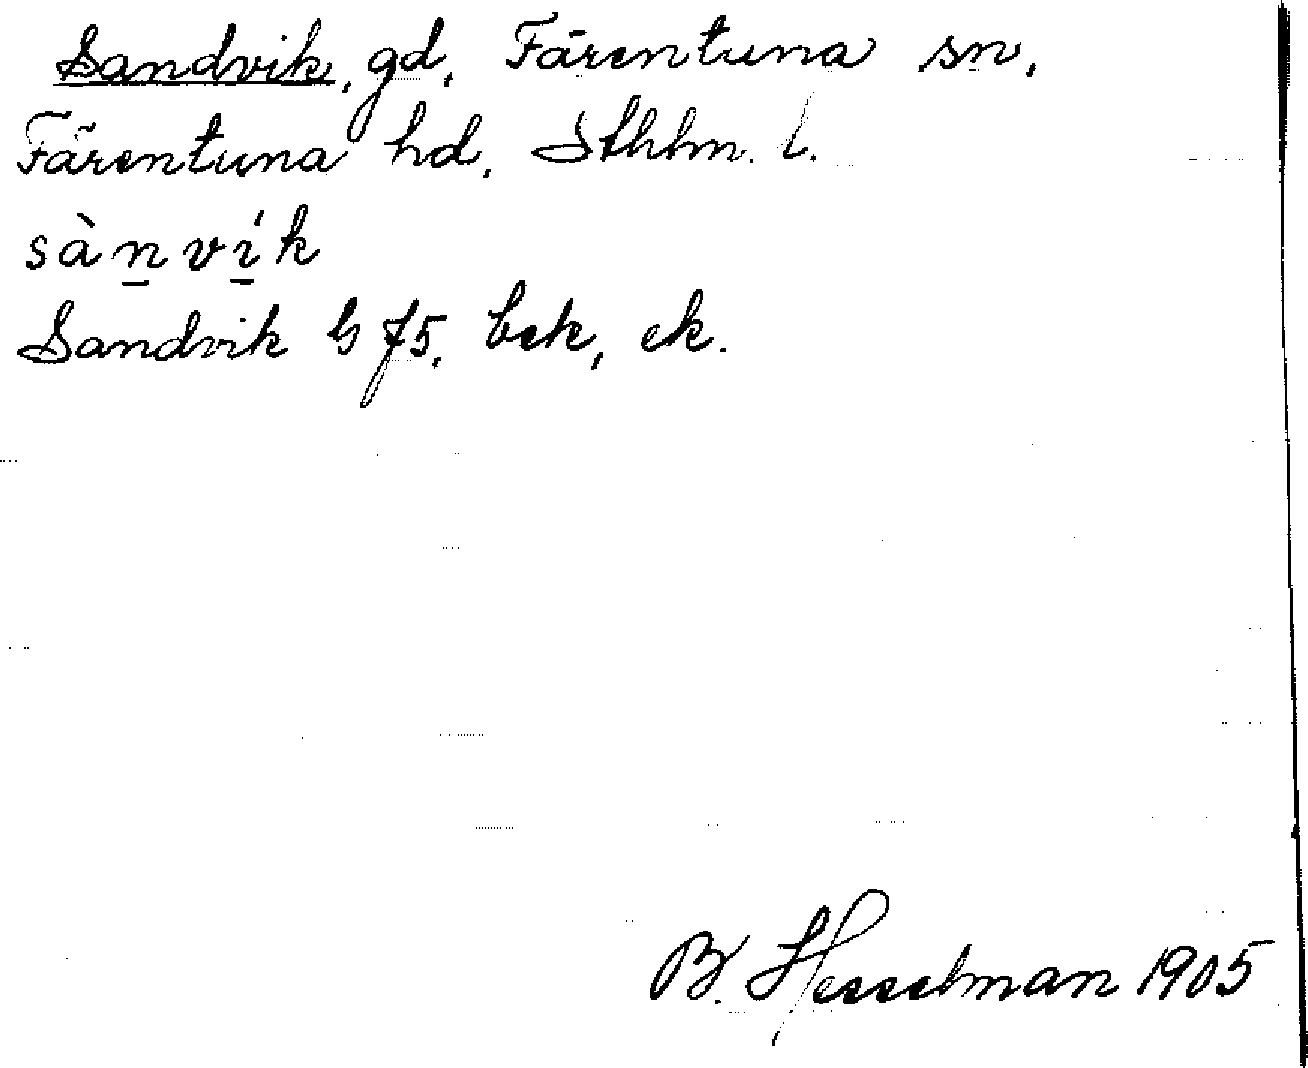 Sandvik, gd, Färentuna sn,
Färentuna hd, Sthlm. l.
sàn̲ví̲k
Sandvik G 75, bek, ek.
B. Hesselman 1905